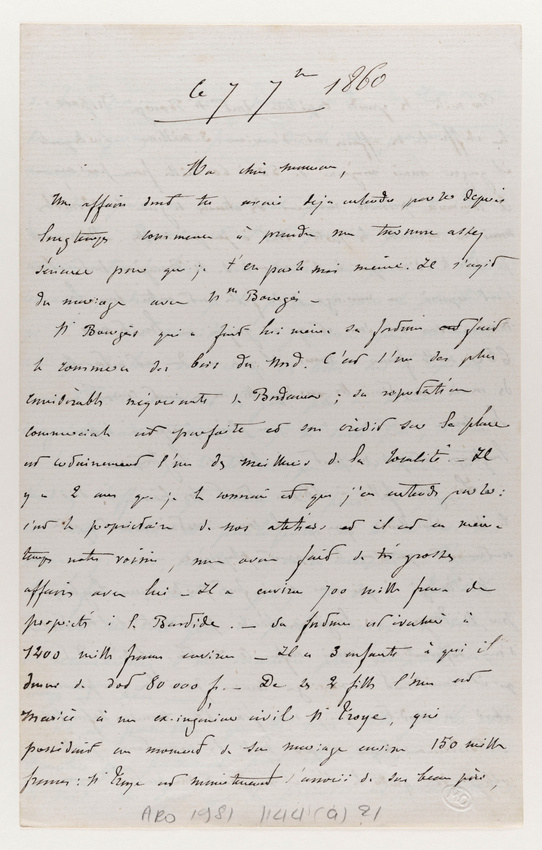 Ce 7 7bre 1860
Ma chère maman,
Une affaire dont tu avais déja entendu parler depuis
longtemps commence à prendre une tournure assez
sérieuse pour que je t'en parle moi même. Il s'agit
du mariage avec Mlle Bourgès —
Mr Bourgès qui a fait lui même sa fortune fait
le commerce des bois du Nord. C'est l'un des plus
considérables négociants de Bordeaux ; sa réputation
commerciale est parfaite et son crédit sur la place
est certainement l'un des meilleurs de la localité — Il
y a 2 ans que je le connais et que j'en entends parler :
c'est le propriétaire de nos ateliers et il est en même
temps notre voisin, nous avons fait de très grosses
affaires avec lui — Il a environ 700 mille francs de
propriétés à la Bastide. — Sa fortune est évaluée à
1200 mille francs environ — Il a 3 enfants à qui il
donne de dot 80 000 f. — De ses 2 filles l'une est
mariée à un ex-ingénieur civil Mr Troye, qui
possédait au moment de son mariage environ 150 mille
francs : Mr Troye est maintenant l'associé de son beau père,
ARO 1981 1144 (a)